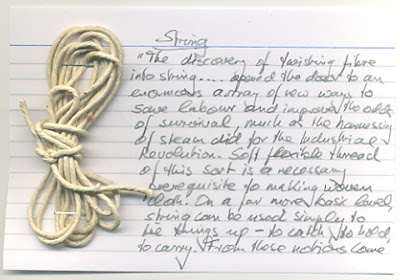 String
"The discovery of twisting fibre
into string.... opened the door to an
enormous array of new ways to
save labour and improve the odds
of survival, much as the harnessing
of steam did for the Industrial
Revolution. Soft flexible thread
of this sort is a necessary
prerequisite to making woven
cloth. On a far more basic level,
string can be used simply to
tie things up - to catch, to hold,
to carry. From these notions come